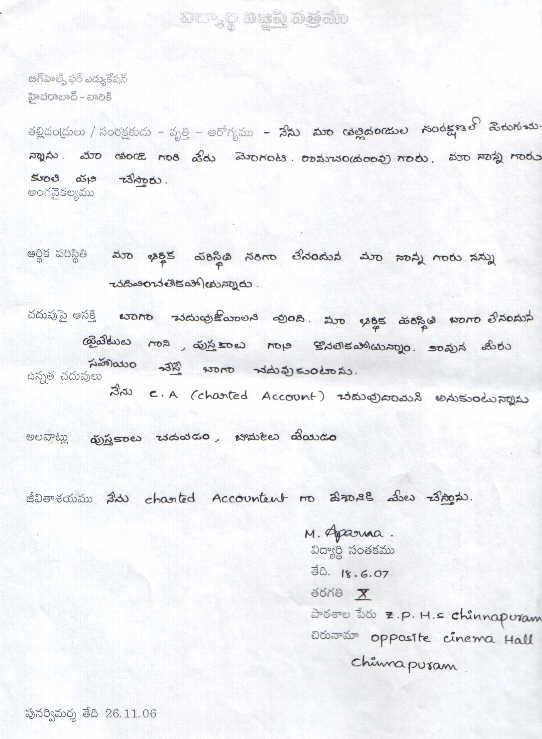 విద్యార్థి విజ్ఞప్తి పత్రము
హైదరాబాద్ - వారికి
తల్లిదండ్రులు / సంరక్షకుడు - వృత్తి - ఆరోగ్యము - నేను మా తల్లిదండ్రుల సంరక్షణలో పెరుగుచు
న్నాను. మా తండ్రి గారి పేరు మొగంటి. రామచంద్రరావు గారు. మా నాన్న గారు
కూలి పని చేస్తారు.
అంగవైకల్యము
ఆర్థిక పరిస్థితి మా ఆర్థిక పరిస్థితి సరిగా లేనందున మా నాన్న గారు నన్ను
చదివించలేకపోతున్నారు.
చదువుపై ఆసక్తి బాగా చదువుకోవాలని వుంది. మా ఆర్థిక పరిస్థితి బాగా లేనందున
ప్రైవేటులు గాని, పుస్తకాలు గాని కొనలేకపోతున్నాం. కావున మీరు
సహాయం చేస్తే బాగా చదువుకుంటాను.
ఉన్నత చదువులు
నేను C.A (charted Account) చదువుదామని అనుకుంటున్నాను
అలవాట్లు పుస్తకాలు చదవడం, బొమ్మలు వేయడం
జీవితాశయము నేను charted Accountent గా దేశానికి మేలు చేస్తాను.
M. Aparna.
విద్యార్థి సంతకము
తేది. 18.6.07
తరగతి X
పాఠశాల పేరు Z.P.H.S chinnapuram
చిరునామా opposite cinema Hall
chinnapuram
పునర్విమర్శ తేది 26.11.06